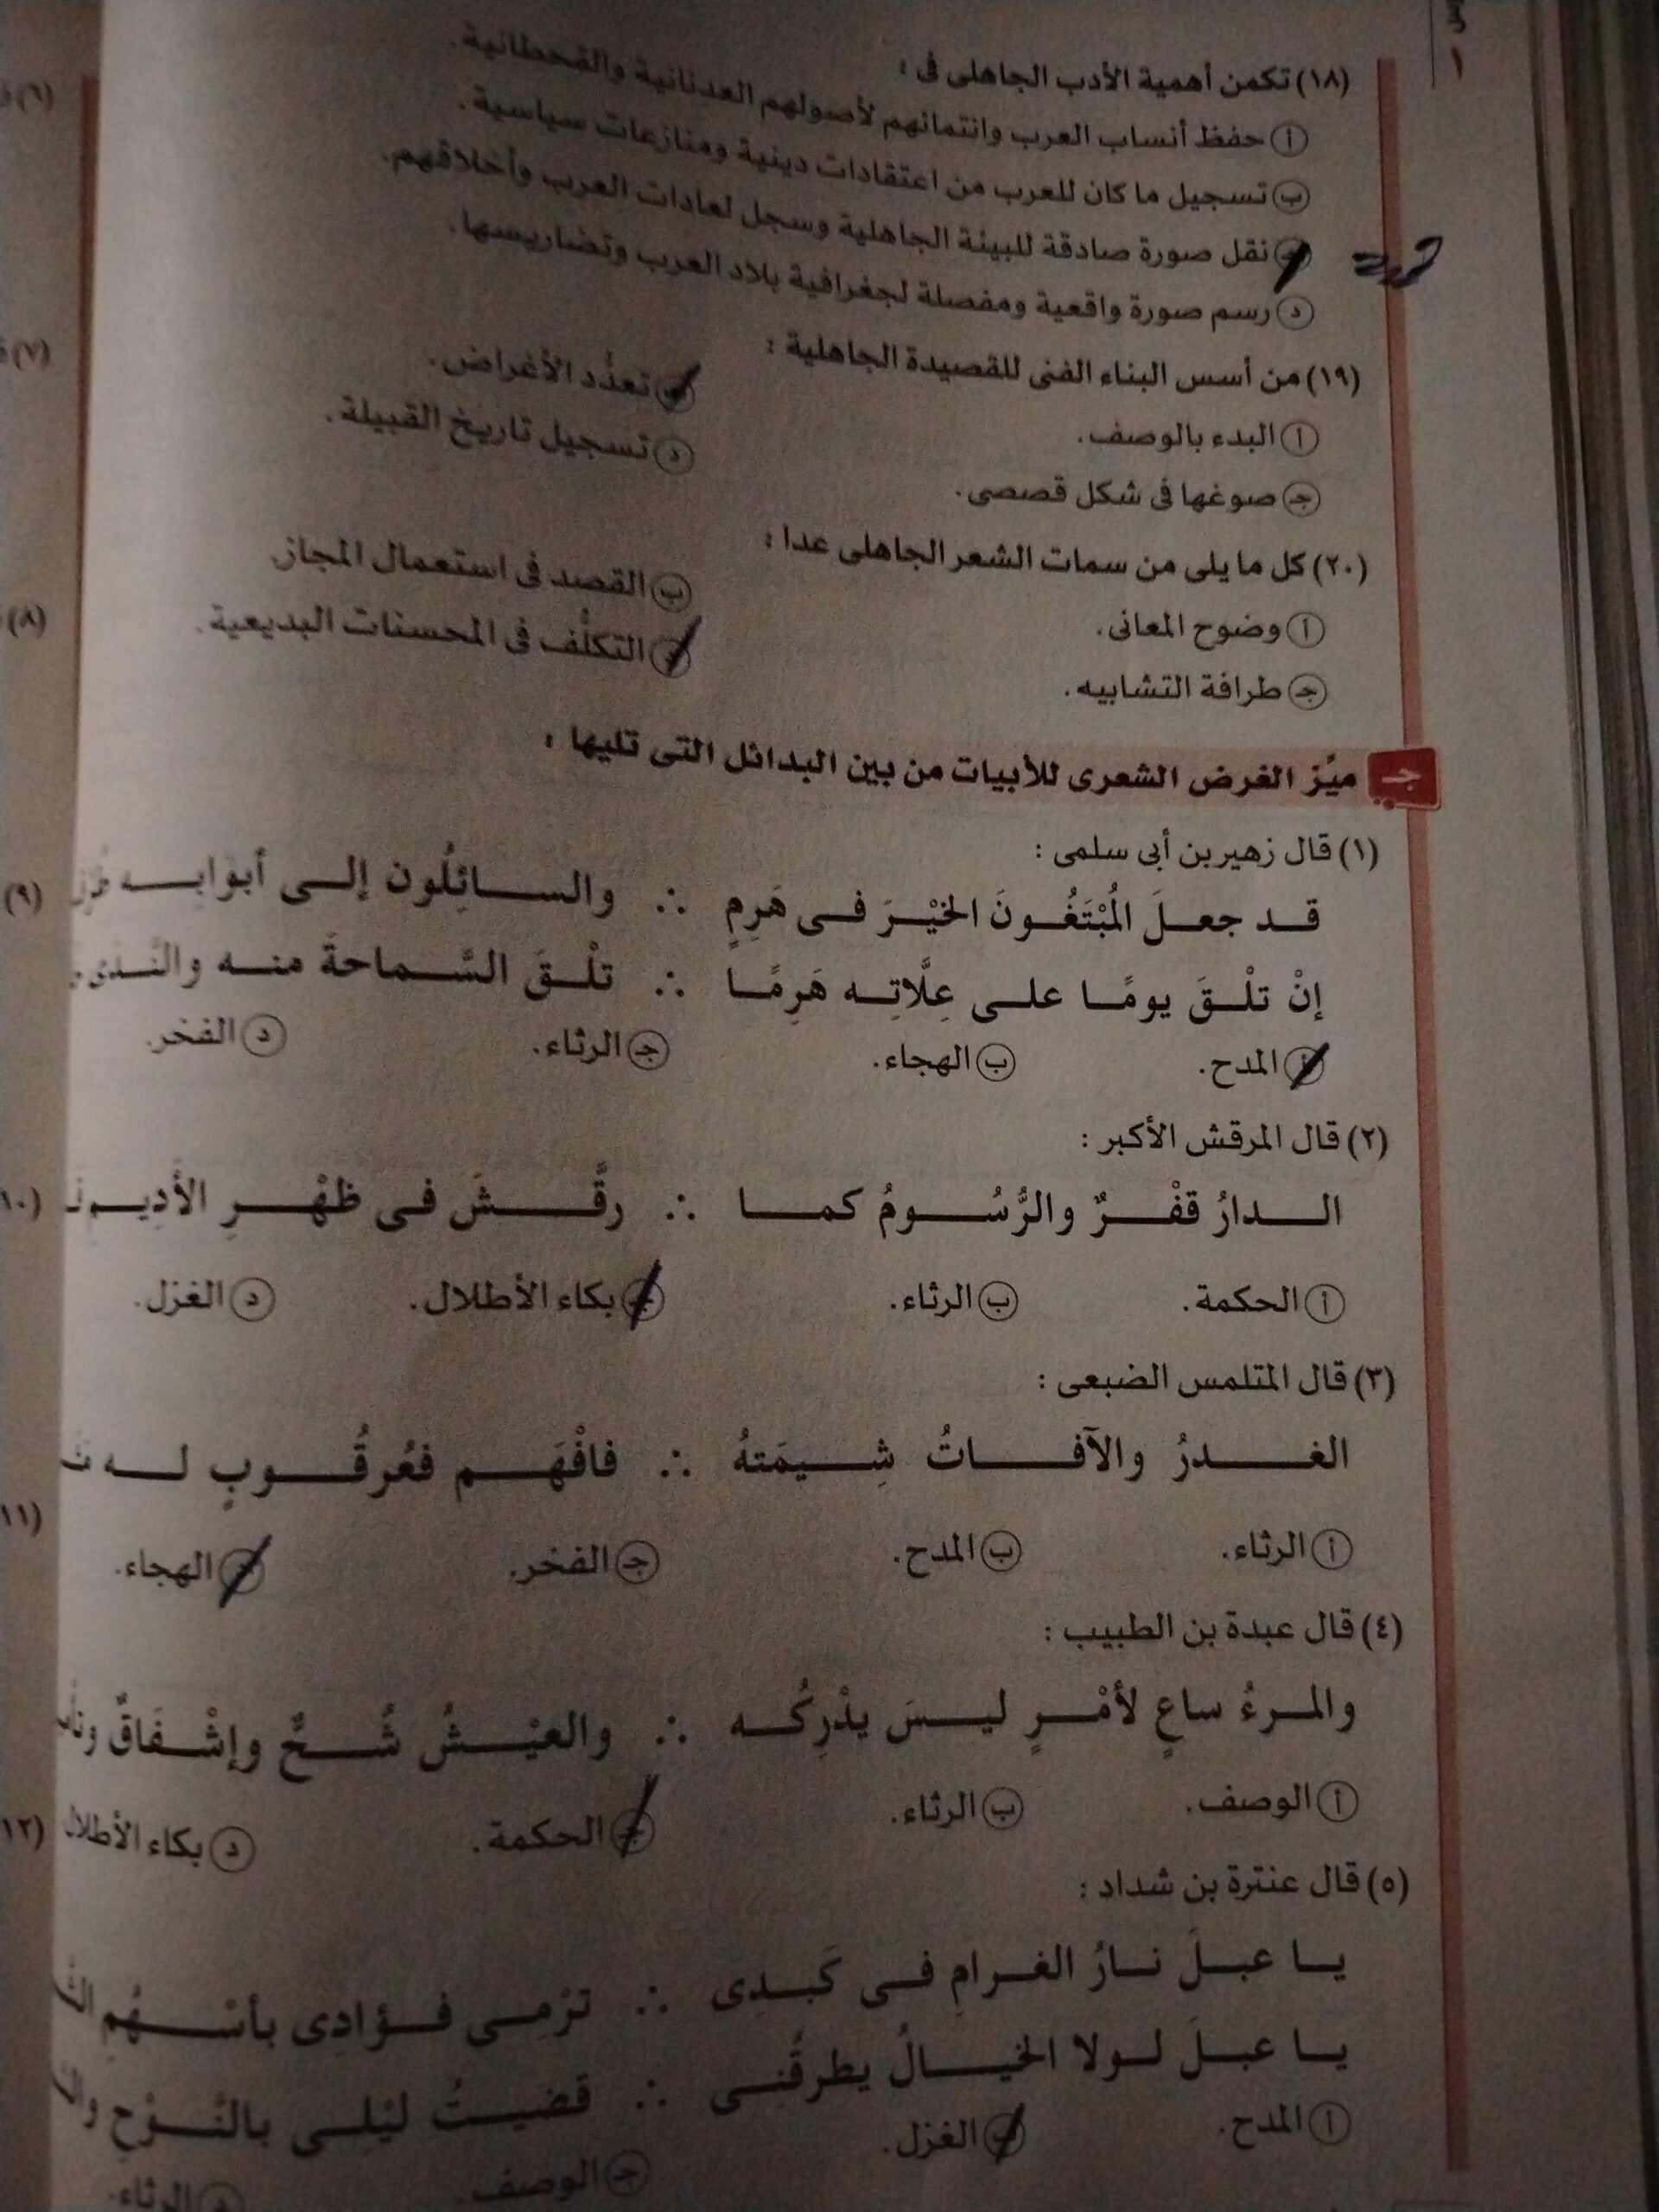 (١٨) تكمن أهمية الأدب الجاهلى فى :
أ حفظ أنساب العرب وانتمائهم لأصولهم العدنانية والقحطانية.
ب تسجيل ما كان للعرب من اعتقادات دينية ومنازعات سياسية.
جـ نقل صورة صادقة للبيئة الجاهلية وسجل لعادات العرب وأخلاقهم.
د رسم صورة واقعية ومفصلة لجغرافية بلاد العرب وتضاريسها.
(١٩) من أسس البناء الفنى للقصيدة الجاهلية :
أ البدء بالوصف. ب تعدُّد الأغراض.
جـ صوغها فى شكل قصصى. د تسجيل تاريخ القبيلة.
(٢٠) كل ما يلى من سمات الشعر الجاهلى عدا :
أ وضوح المعانى. ب القصد فى استعمال المجاز.
جـ طرافة التشابيه. د التكلُّف فى المحسنات البديعية.
جـ ميِّز الغرض الشعرى للأبيات من بين البدائل التى تليها :
(١) قال زهير بن أبى سلمى :
قد جعلَ المُبْتَغُونَ الخيْرَ فى هَرِمٍ ∴ والسائِلُون إلى أبوابه
إنْ تلْقَ يومًا على عِلَّاتِه هَرِمًا ∴ تلْقَ السَّماحةَ منه والنَّدى
أ المدح. ب الهجاء. جـ الرثاء. د الفخر.
(٢) قال المرقش الأكبر :
الدارُ قفْرٌ والرُّسُومُ كما ∴ رقَّشَ فى ظهْرِ الأَدِيمِ
أ الحكمة. ب الرثاء. جـ بكاء الأطلال. د الغزل.
(٣) قال المتلمس الضبعى :
الغدرُ والآفاتُ شِيمَتهُ ∴ فافْهَم فعُرقُوبٍ له
أ الرثاء. ب المدح. جـ الفخر. د الهجاء.
(٤) قال عبدة بن الطبيب :
والمرءُ ساعٍ لأمْرٍ ليسَ يدْرِكُه ∴ والعيْشُ شُحٌّ وإشْفَاقٌ
أ الوصف. ب الرثاء. جـ الحكمة. د بكاء الأطلال
(٥) قال عنترة بن شداد :
يا عبلَ نارُ الغرامِ فى كَبَدِى ∴ ترْمِى فؤادِى بأسْهُمِ
يا عبلَ لولا الخيالُ يطرقُنِى ∴ قضيتُ ليْلِى بالنَّوْحِ
أ المدح. ب الغزل. جـ الوصف. د الرثاء.
(٧)
(٨)
(٩)
(١٢)